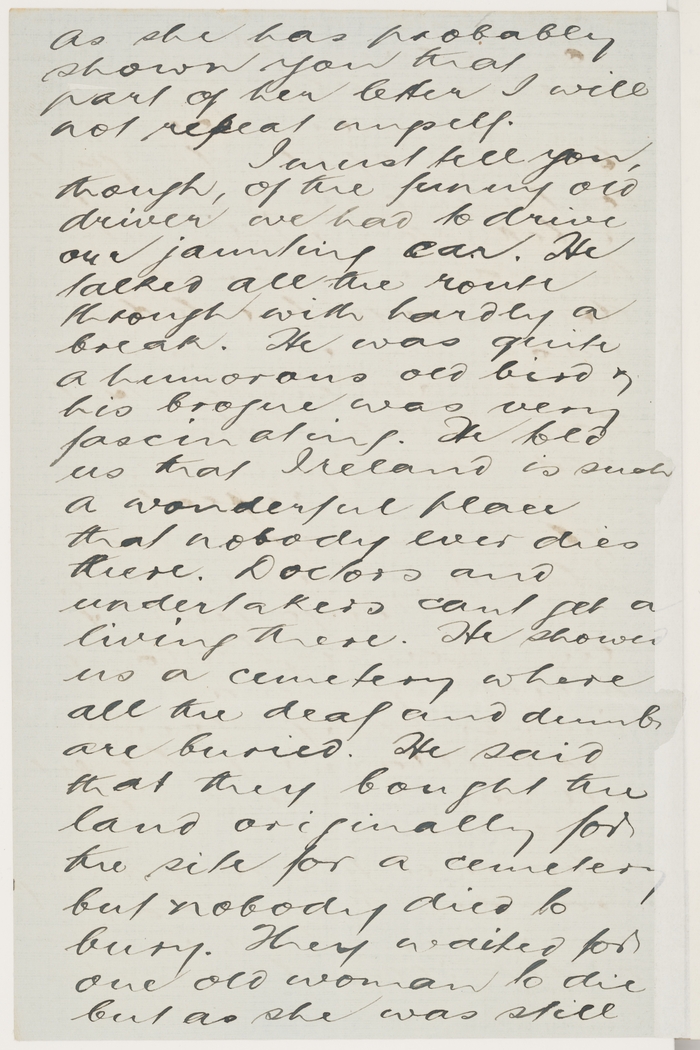 as she has probably
shown you that
part of her letter I will
not repeat myself.
I must tell you,
though, of the funny old
driver we had to drive
our jaunting car. He
talked all the route
through with hardly a
break. He was quite
a humorous old bird &
his brogue was very
fascinating. He told
us that Ireland is such
a wonderful place
that nobody ever dies
there. Doctors and
undertakers cant get a
living there. He showed
us a cemetery where
all the deaf and dumb
are buried. He said
that they bought the
land originally for
the site for a cemetery
but nobody died to
bury. They waited for
one old woman to die
but as she was still